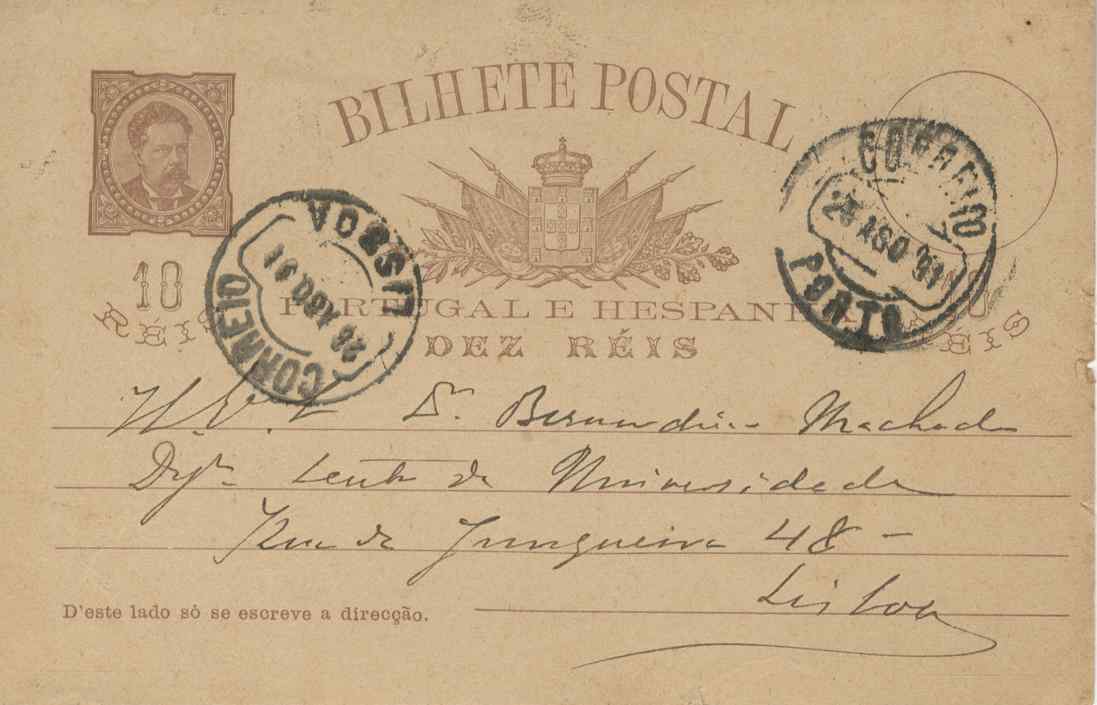 BILHETE POSTAL
10 RÉIS
10 RÉIS
PORTUGAL E HESPANHA
DEZ RÉIS
CORREIO
LISBOA
CORREIO
25 AGO 91
PORTO
Dr. Bernardino Machado
Digmo Lente da Universidade
Rua da Junqueira 48 -
Lisboa
D'este lado só se escreve a direcção.